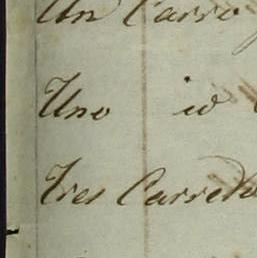 Un Carro
Uno id
Tres Carreto